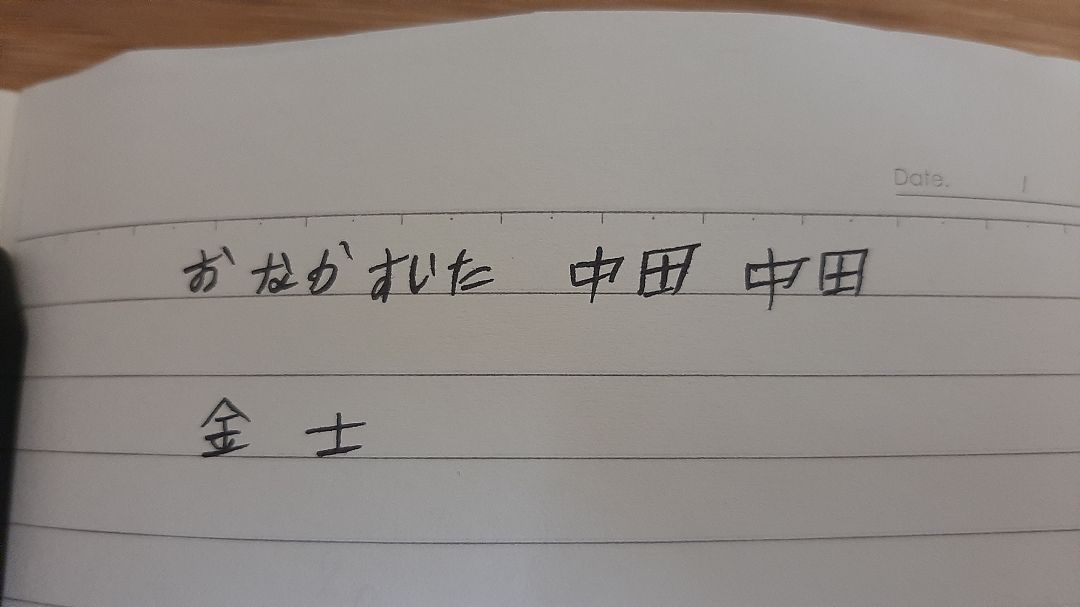 Date. /
おなかすいた 中田 中田
金 士